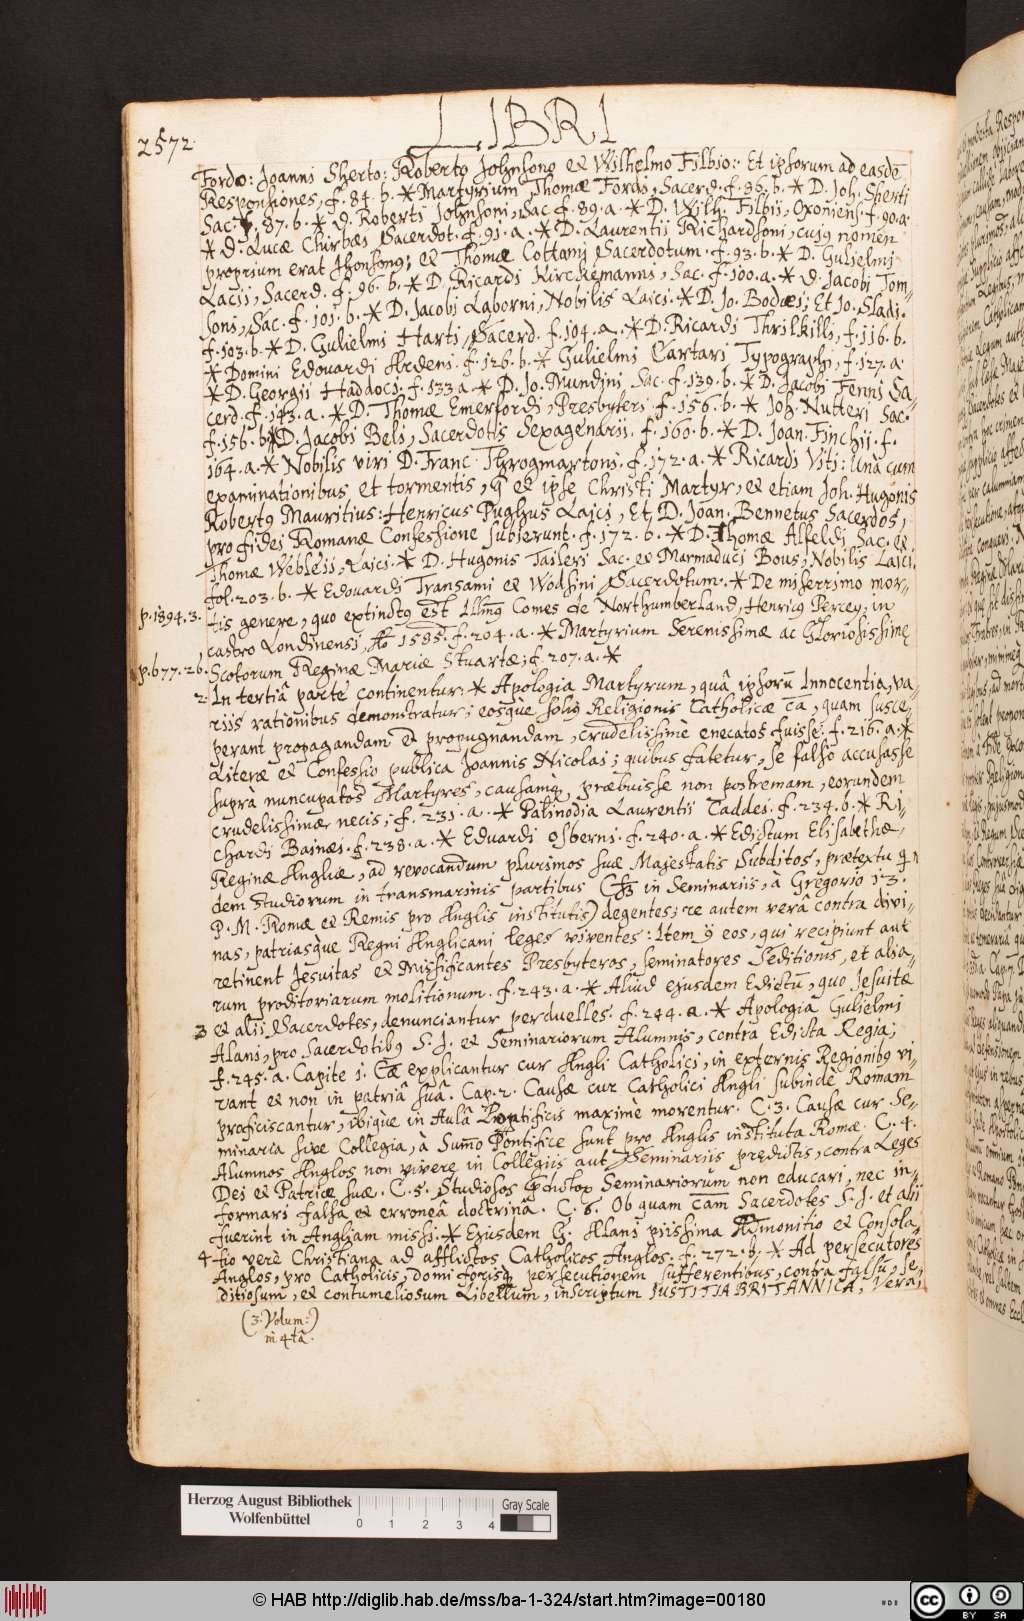 LIBRI
2572.
Fordo: Joanni Sherto: Roberto Johnsono et Wilhelmo Filbio: Et ipsorum ad easdē
Responsiones, f. 84. b. * Martyrium Thomæ Fordi, Sacerd. f. 86. b. * D. Joh. Sherti
Sac. f. 87. b. * D. Roberti Johnsoni, Sac. f. 89. a. * D. Wilh. Filbii, Oxoniens. f. 90. a.
* D. Lucæ Chirbæi Sacerdot. f. 91. a. * D. Laurentii Richardsoni, cujus nomen
proprium erat Jhonsonus; et Thomæ Cottami Sacerdotum. f. 93. b. * D. Gulielmi
Lacii, Sacerd. f. 96. b. * D. Ricardi Kirckemanni, Sac. f. 100. a. * D. Jacobi Tom-
soni, Sac. f. 101. b. * D. Jacobi Laborni, Nobilis Laici. * D. Jo. Bodæi; Et Jo. Sladi.
f. 103. b. * D. Gulielmi Harti, Sacerd. f. 104. a. * D. Ricardi Thrilkilli, f. 116. b.
* Domini Edouardi Ardeni. f. 126. b. * Gulielmi Cartari Typographi, f. 127. a.
* D. Georgii Haddoci. f. 133 a. * D. Jo. Mundini, Sac. f. 139. b. * D. Jacobi Fenni Sa-
cerd. f. 143. a. * D. Thomæ Emerfordi, Presbyteri. f. 156. b. * Joh. Nutteri Sac.
f. 156. b. * D. Jacobi Beli, Sacerdotis Sexagenarii. f. 160. b. * D. Joan. Finchii. f.
164. a. * Nobilis viri D. Franc. Throgmartoni. f. 172. a. * Ricardi Viti: Unà cum
examinationibus et tormentis, q̃ et ipse Christi Martyr, et etiam Joh. Hugonis
Robertq Mauritius: Henricus Pughus Laici, Et D. Joan. Bennetus Sacerdos,
pro fidei Romanæ Confessione subierunt. f. 172. b. * D. Thomæ Alfeldi Sac. et
Thomæ Webleii, Laici. * D. Hugonis Taileri Sac. et Marmaduci Bous, Nobilis Laici.
fol. 203. b. * Edouardi Transami et Wodfini Sacerdotum. * De miserrimo mor-
p. 1894. 3. tis genere, quo extinctq est Illmq Comes de Northumberland, Henricq Percey, in
castro Londinensi, Ao 1585. f. 204. a. * Martyrium Serenissimæ ac Gloriosissimę
p. 677. 26. Scotorum Reginæ Mariæ Stuartæ; f. 207. a. *
2. In tertiâ parte continentur. * Apologia Martyrum, quâ ipsorū Innocentia, va-
riis rationibus demonstratur; eosque soliq Religionis Catholicæ cā, quam susce-
perant propagandam et propugnandam, crudelissimè enecatos fuisse. f. 216. a. *
Literæ et Confessio publica Joannis Nicolai; quibus fatetur, se falso accusasse
suprà nuncupatos Martyres, causamq, præbuisse non postremam, eorundem
crudelissimæ necis; f. 231. a. * Palinodia Laurentii Caddei. f. 234. b. * Ri-
chardi Bainei. f. 238. a. * Eduardi Osberni. f. 240. a. * Edictum Elisabethæ,
Reginæ Angliæ, ad revocandum plurimos suæ Majestatis Subditos, prætextu q-
dem studiorum in transmarinis partibus (scz in Seminariis, à Gregorio 13.
P. M. Romæ et Remis pro Anglis institutis) degentes; re autem verâ contra divi-
nas, patriasque Regni Anglicani leges viventes: Item ÿ eos, qui recipiunt aut
retinent Jesuitas et Missificantes Presbyteros, seminatores Seditionis, et alia-
rum proditoriarum molitionum. f. 243. a. * Aliud ejusdem Edictū, quo Jesuitæ
3 et alii Sacerdotes, denunciantur perduelles. f. 244. a. * Apologia Gulielmi
Alani, pro Sacerdotibq S. J. et Seminariorum Alumnis, contra Edicta Regia;
f. 245. a. Capite 1. Cæ explicantur cur Angli Catholici, in externis Regionibq vi-
vant et non in patriâ suâ. Cap. 2. Causæ cur Catholici Angli subindè Romam
proficiscantur, ibique in Aulâ Pontificis maximè morentur. C. 3. Causæ cur Se-
minaria sive Collegia, à Summo Pontifice sunt pro Anglis instituta Romæ. C. 4.
Alumnos Anglos non vivere in Collegiis aut Seminariis prędictis, contra Leges
Dei et Patriæ suæ. C. 5. Studiosos Seminariorum non educari, nec in-
formari falsâ et erroneâ doctrinâ. C. 6. Ob quam cām Sacerdotes S. J. et alii
fuerint in Angliam missi. * Ejusdem G. Alani piissima Admonitio et Consola-
4 tio verè Christiana ad afflictos Catholicos Anglos. f. 272. b. * Ad persecutores
Anglos, pro Catholicis, domi forisq persecutionem sufferentibus, contra falsū, se-
ditiosum, et contumeliosum Libellum, inscriptum IUSTITIA BRITANNICA, Vera,
(3. Volum:)
in 4tâ.
Herzog August Bibliothek
Wolfenbüttel
0 1 2 3 4
Gray Scale
© HAB http://diglib.hab.de/mss/ba-1-324/start.htm?image=00180
CC BY SA